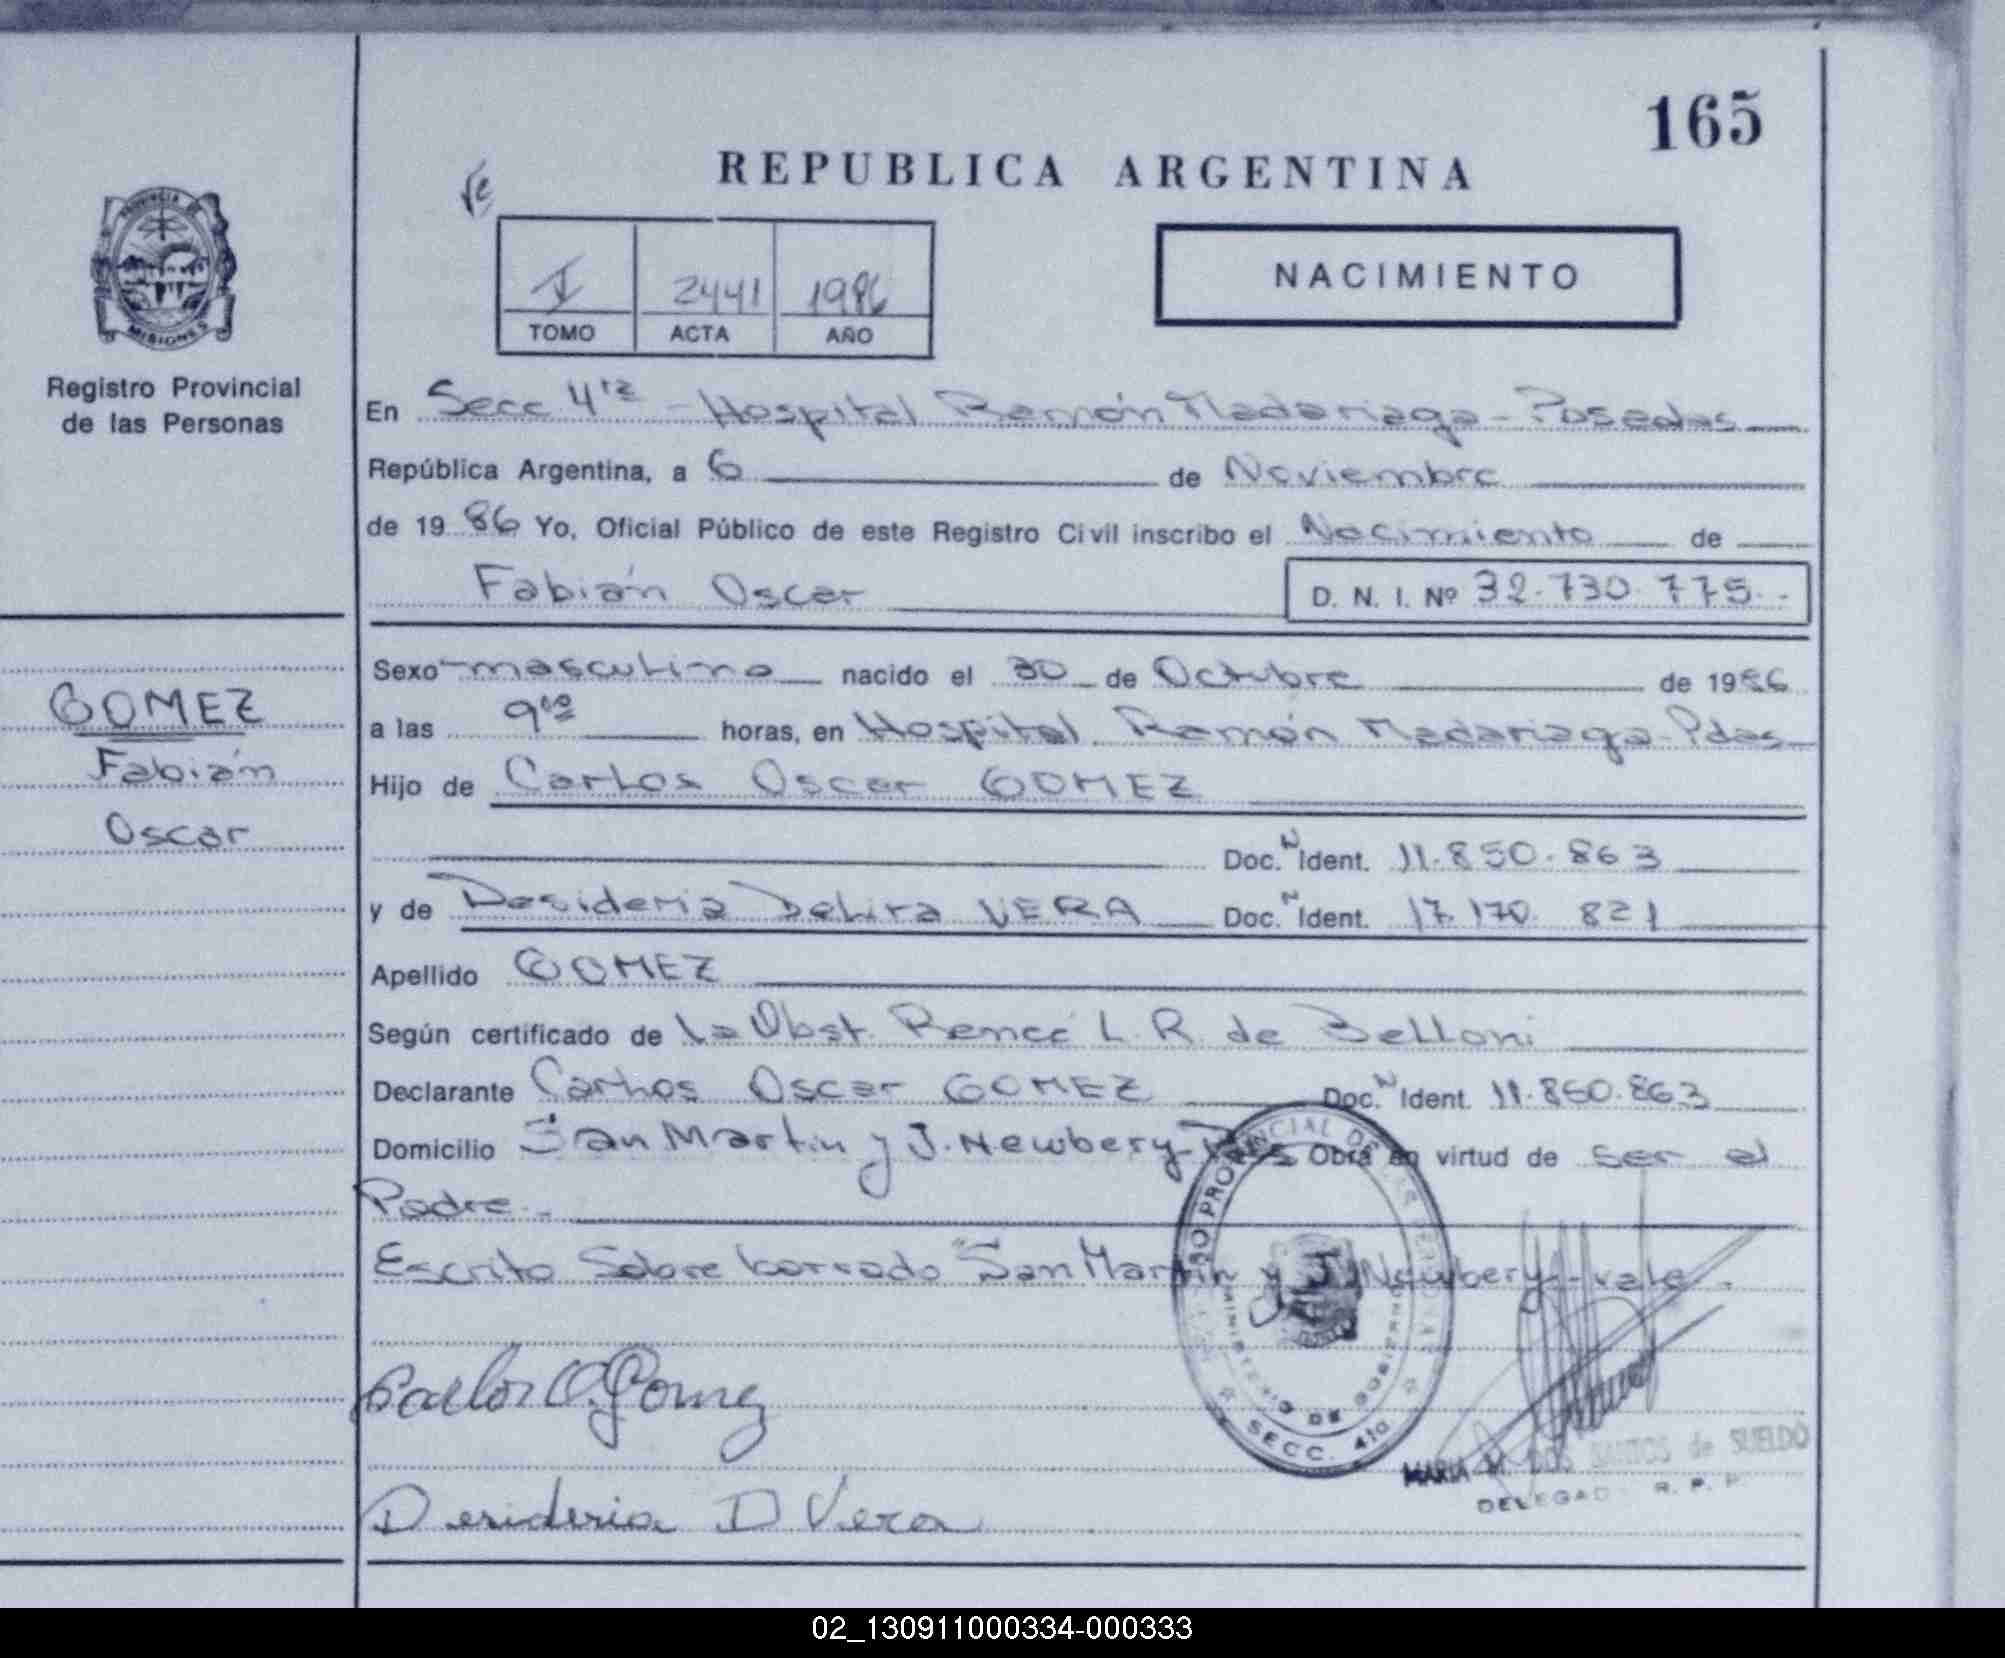 165
REPUBLICA ARGENTINA
PROVINCIA DE
MISIONES
Registro Provincial
de las Personas
I 2441 1986
TOMO ACTA AÑO
NACIMIENTO
En Secc 4ta - Hospital Ramón Madariaga - Posadas
República Argentina, a 6 de Noviembre
de 1986 Yo, Oficial Público de este Registro Civil inscribo el Nacimiento de
Fabián Oscar D. N. I. Nº 32.730.775.-
Sexo masculino nacido el 30 de Octubre de 1986
GOMEZ
Fabián
Oscar
a las 9 horas, en Hospital Ramón Madariaga - Pdas
Hijo de Carlos Oscar GOMEZ
Doc. N Ident. 11.850.863
y de Desideria Delira VERA Doc. N Ident. 17.170.821
Apellido GOMEZ
Según certificado de la Obst. Reneé L. R. de Belloni
Declarante Carlos Oscar GOMEZ Doc. N Ident. 11.850.863
Domicilio San Martin y J. Newbery - Pdas Obra en virtud de ser el
Padre.-
Escrito Sobre borrado "San Martin y J. Newbery - vale.
Carlos O. Gomez
Desideria D Vera
SECC. 4ta
MARIA M. DOS SANTOS de SUELDO
DELEGAD R. P. P.
02_130911000334-000333